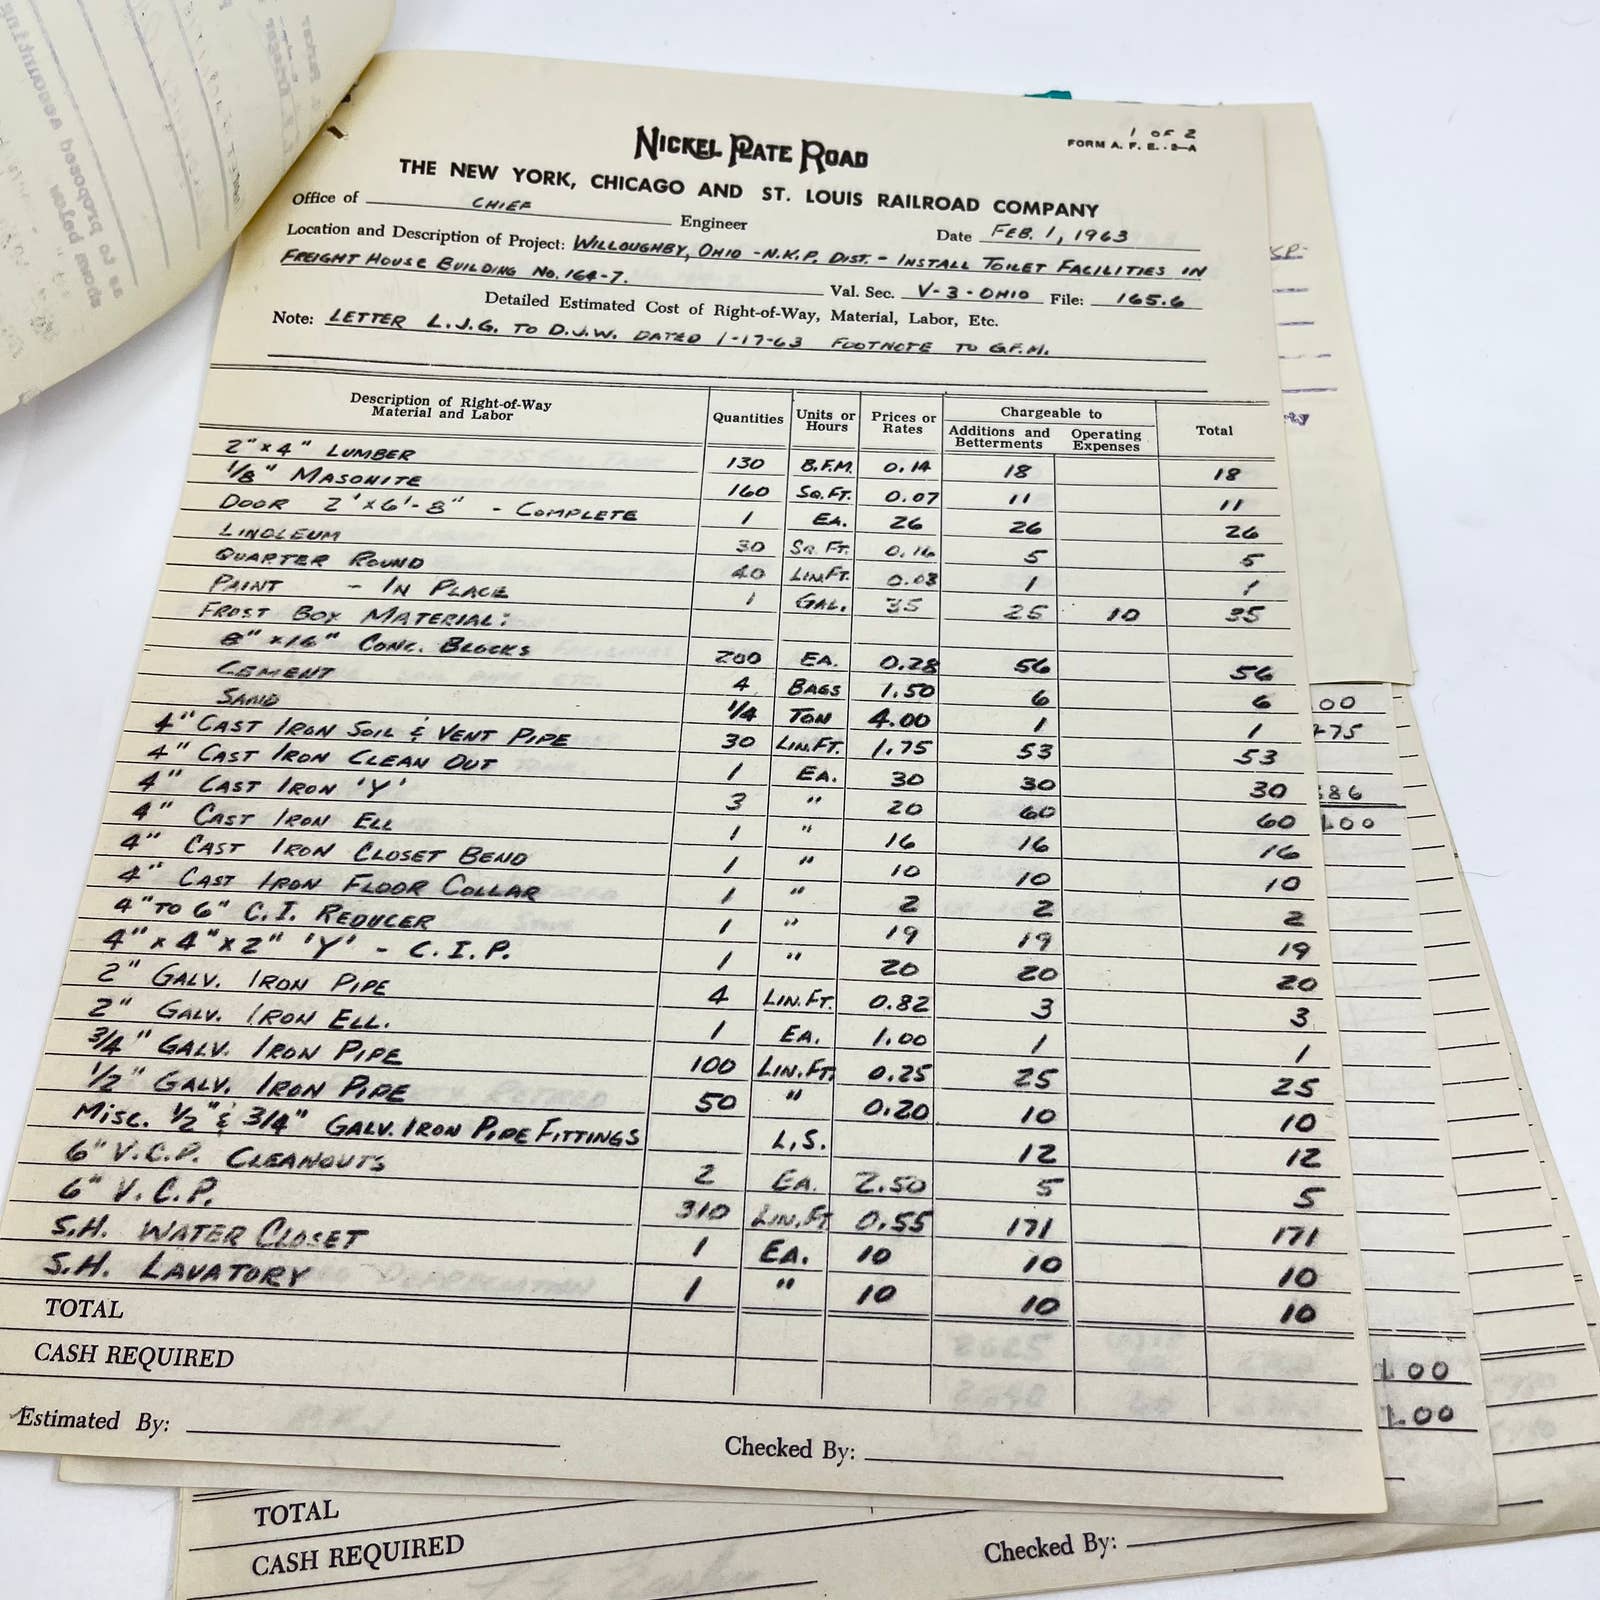 1 OF 2
NICKEL PLATE ROAD
FORM A. F. E.-2-A
THE NEW YORK, CHICAGO AND ST. LOUIS RAILROAD COMPANY
Office of CHIEF Engineer
Date FEB. 1, 1963
Location and Description of Project: WILLOUGHBY, OHIO - N.K.P. DIST. - INSTALL TOILET FACILITIES IN
FREIGHT HOUSE BUILDING NO. 164-7. Val. Sec. V-3-OHIO File: 165.6
Detailed Estimated Cost of Right-of-Way, Material, Labor, Etc.
Note: LETTER L.J.G. TO D.J.W. DATED 1-17-63 FOOTNOTE TO G.F.M.
Description of Right-of-Way Material and Labor Quantities Units or Hours Prices or Rates Chargeable to Additions and Betterments Operating Expenses Total
2"x4" LUMBER 130 B.F.M. 0.14 18 18
1/8" MASONITE 160 SQ.FT. 0.07 11 11
DOOR 2'x6'-8" - COMPLETE 1 EA. 26 26 26
LINOLEUM 30 SQ.FT. 0.16 5 5
QUARTER ROUND 40 LIN.FT. 0.03 1 1
PAINT - IN PLACE 1 GAL. 35 25 10 35
FROST BOX MATERIAL:
8"x16" CONC. BLOCKS 200 EA. 0.28 56 56
CEMENT 4 BAGS 1.50 6 6
SAND 1/4 TON 4.00 1 1
4" CAST IRON SOIL & VENT PIPE 30 LIN.FT. 1.75 53 53
4" CAST IRON CLEAN OUT 1 EA. 30 30 30
4" CAST IRON 'Y' 3 " 20 60 60
4" CAST IRON ELL 1 " 16 16 16
4" CAST IRON CLOSET BEND 1 " 10 10 10
4" CAST IRON FLOOR COLLAR 1 " 2 2 2
4" TO 6" C.I. REDUCER 1 " 19 19 19
4"x4"x2" 'Y' - C.I.P. 1 " 20 20 20
2" GALV. IRON PIPE 4 LIN.FT. 0.82 3 3
2" GALV. IRON ELL. 1 EA. 1.00 1 1
3/4" GALV. IRON PIPE 100 LIN.FT. 0.25 25 25
1/2" GALV. IRON PIPE 50 " 0.20 10 10
MISC. 1/2" & 3/4" GALV. IRON PIPE FITTINGS L.S. 12 12
6" V.C.P. CLEANOUTS 2 EA. 2.50 5 5
6" V.C.P. 310 LIN.FT 0.55 171 171
S.H. WATER CLOSET 1 EA. 10 10 10
S.H. LAVATORY 1 " 10 10 10
TOTAL
CASH REQUIRED
Estimated By:
Checked By:
TOTAL
CASH REQUIRED
Checked By: